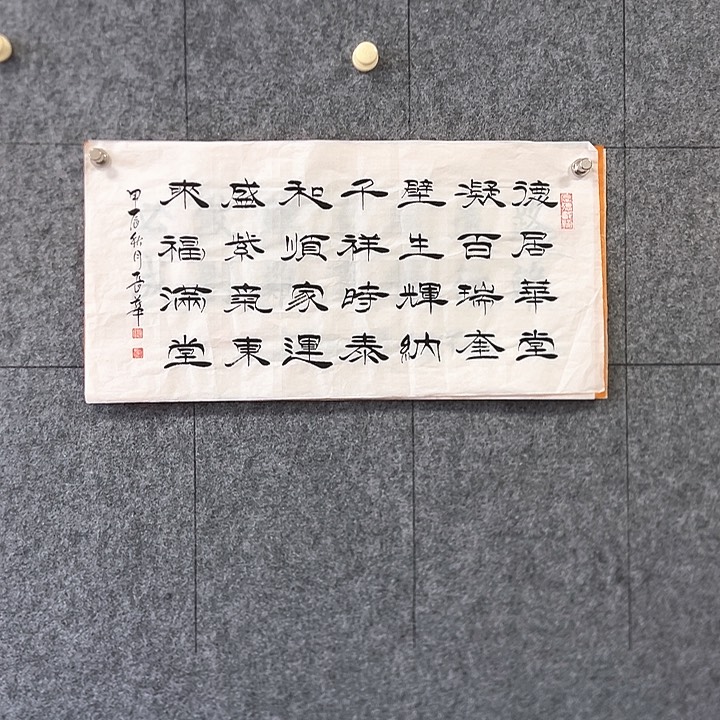 德居華堂
凝百瑞奎
壁生輝納
千祥時泰
和順家運
盛紫氣東
來福滿堂
甲辰秋月長華